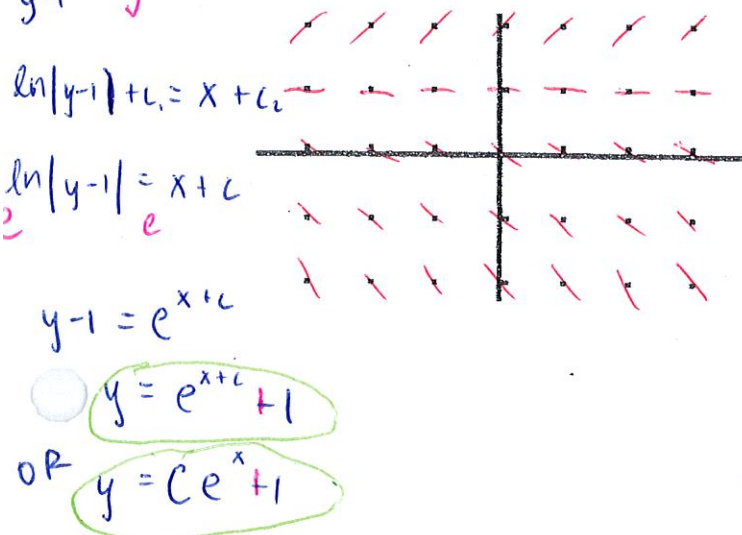 ln|y-1|+c₁ = x + c₂
ln|y-1| = x + c
e e
y-1 = e^{x+c}
y = e^{x+c} + 1
OR y = Ce^x + 1